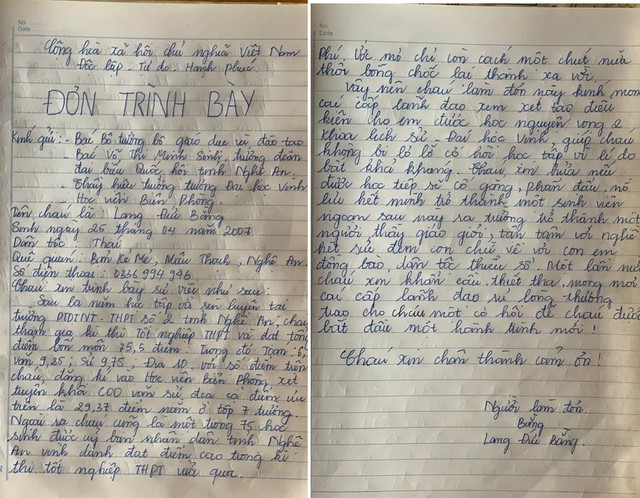 No
Date
Cộng hoà xã hội chủ nghĩa Việt Nam
Độc lập - Tự do - Hạnh phúc.
ĐƠN TRÌNH BÀY
Kính gửi: - Bác Bộ trưởng bộ giáo dục và đào tạo
- Bác Võ Thị Minh Sinh, trưởng đoàn
đại biểu Quốc hội tỉnh Nghệ An.
- Thầy hiệu trưởng trường Đại học Vinh
- Học viện Biên Phòng.
Tên cháu là : Lang Đức Bằng
Sinh ngày 25 tháng 04 năm 2007
Dân tộc : Thái
Quê quán: Bản Kẻ Mẻ, Mậu Thạch, Nghệ An.
Số điện thoại: 0336 994 946
Cháu xin trình bày sự việc như sau:
Sau ba năm học tập và rèn luyện tại
trường PTDTNT - THPT số 2 tỉnh Nghệ An, cháu
tham gia kì thi Tốt nghiệp THPT và đạt tổng
điểm bốn môn 35,5 điểm: trong đó Toán 6;
văn 9,25; Sử 9,75; Địa 10. với số điểm trên
cháu, đăng kí vào Học viện Biên Phòng xét
tuyển khối C00 văn sử, địa cả điểm ưu
tiên là 29,37 điểm nằm ở tốp 7 trường.
Ngoài ra cháu cũng là một trong 75 học
sinh được uỷ ban nhân dân tỉnh Nghệ
An vinh danh đạt điểm cao trong kì
thi tốt nghiệp THPT vừa qua.
No
Date
Phí. Ước mơ chỉ còn cách một chút nữa
thôi bỗng chốc lại thành xa vời.
Vậy nên cháu làm đơn này kính mong
các cấp lãnh đạo xem xét tạo điều
kiện cho em được học nguyện vọng 2
khoa lịch sử - Đại học Vinh, giúp cháu
không bị lỡ lỡ cơ hội học tập vì lí do
bất khả kháng. Cháu xin hứa nếu
được học tiếp sẽ cố gắng, phấn đấu, nỗ
lực hết mình trở thành một sinh viên
ngoan sau này ra trường trở thành một
người thầy giáo giỏi, tận tâm với nghề
hết sức đem con chữ về với con em
đồng bào, dân tộc thiểu số. Một lần nữa
cháu xin khẩn cầu, thiết tha, mong mỏi
các cấp lãnh đạo rủ lòng thương,
trao cho cháu một cơ hội để cháu được
bắt đầu một hành trình mới!
Cháu xin chân thành cảm ơn!
Người làm đơn.
Bằng
Lang Đức Bằng.